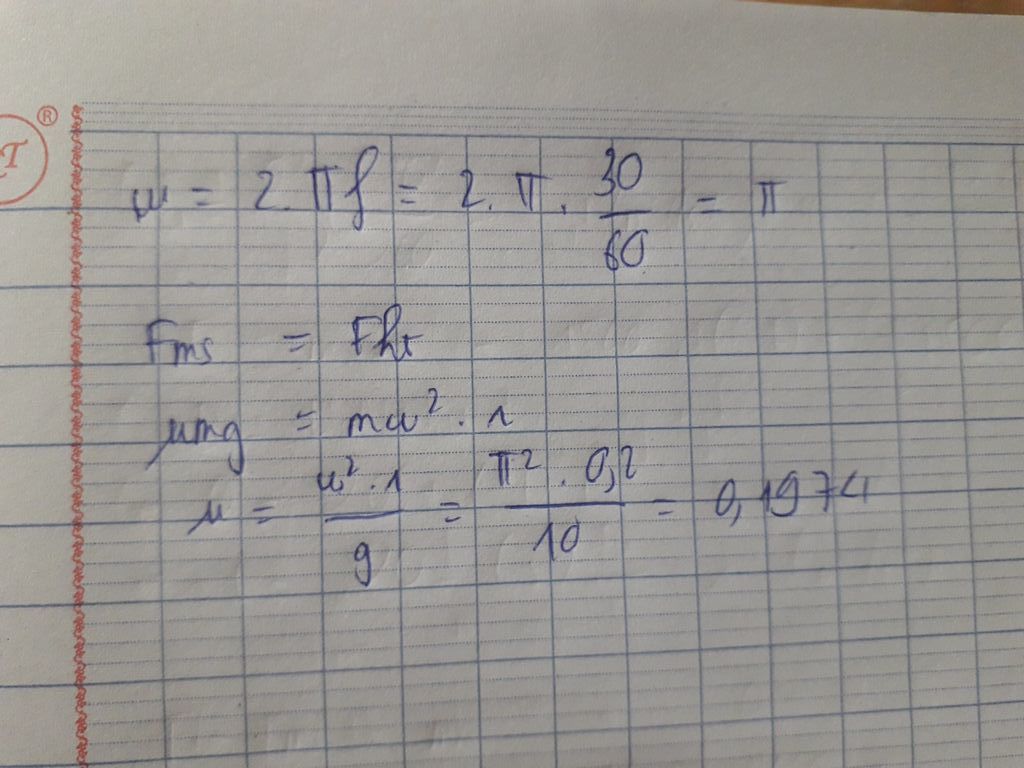 ® 
T
ω = 2. π f = 2. π . 30/60 = π
Fms = Fht
μmg = mω² . r
μ = ω² . r/g = π² . 0,2/10 = 0,1974